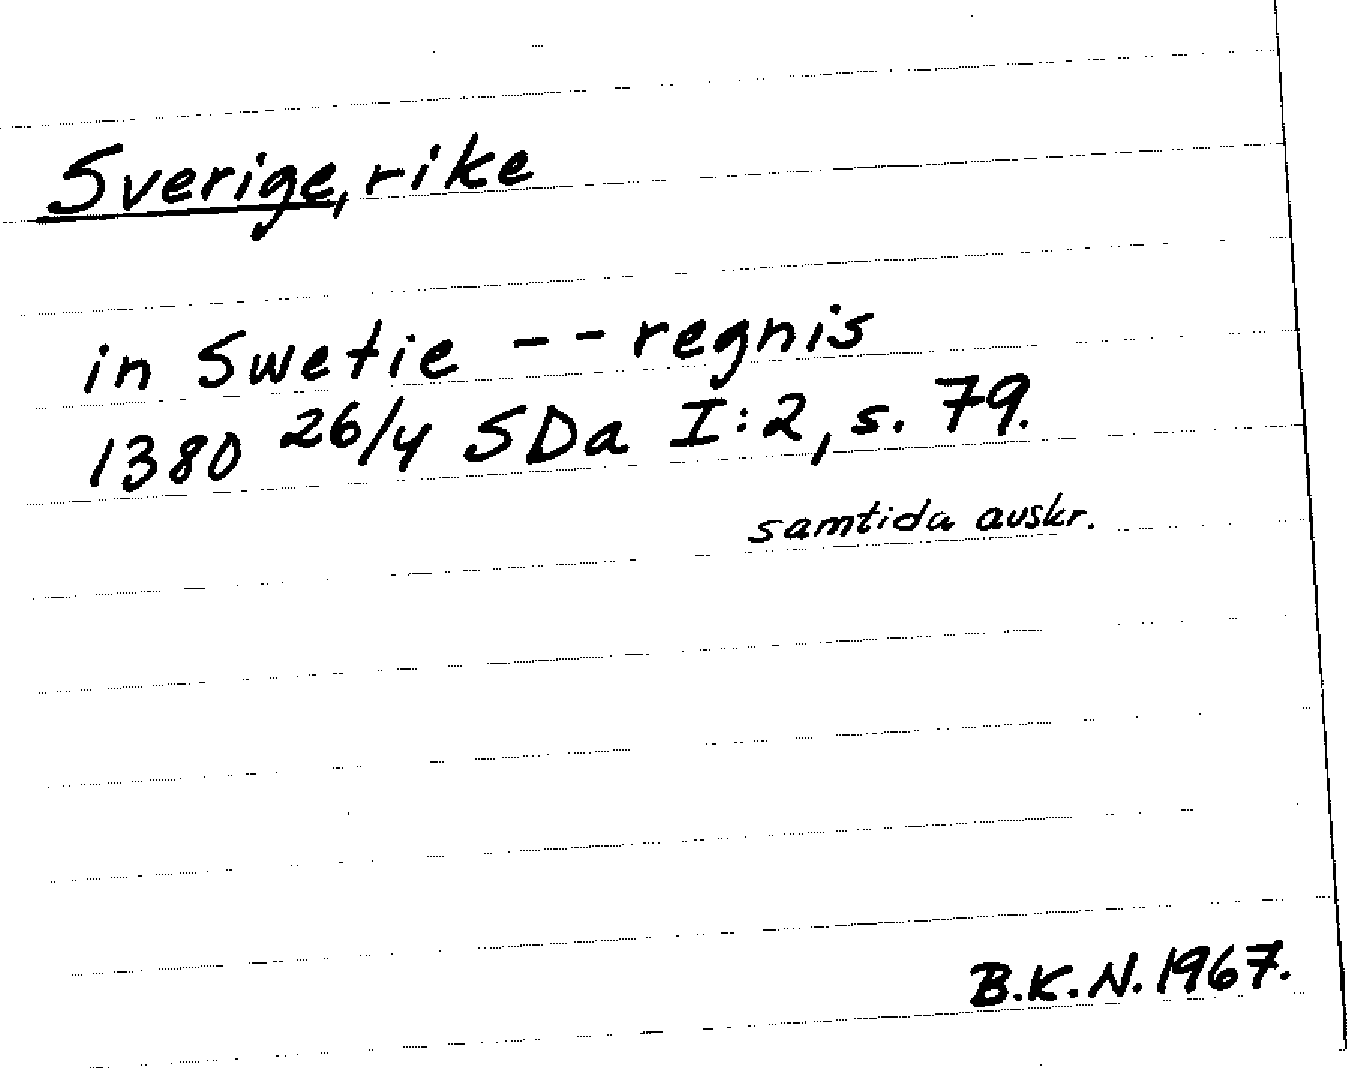 Sverige, rike
in Swetie -- regnis
1380 26/4 SDa I:2, s. 79.
samtida avskr.
B.K.N. 1967.